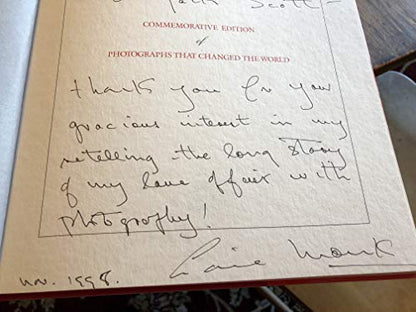 Scott -
COMMEMORATIVE EDITION
of
PHOTOGRAPHS THAT CHANGED THE WORLD
Thank you for your
gracious interest in my
retelling the long story
of my love affair with
photography!
Lorraine Monk
Nov. 1998.